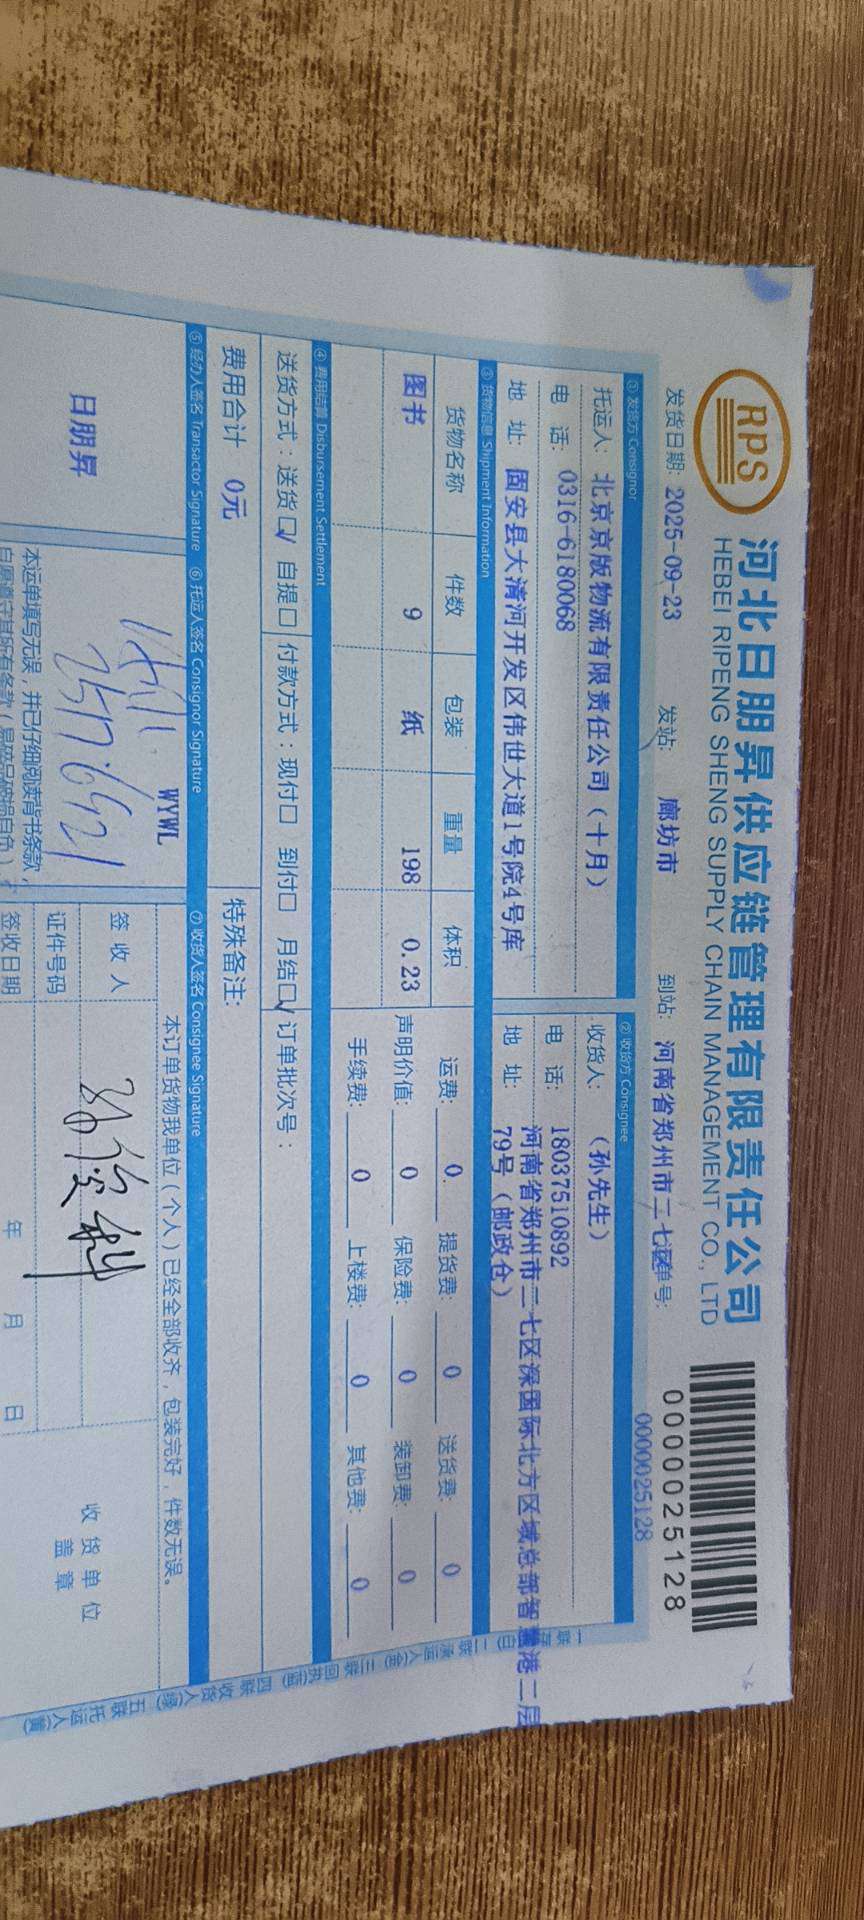 RPS
河北日朋昇供应链管理有限责任公司
HEBEI RIPENG SHENG SUPPLY CHAIN MANAGEMENT CO., LTD
0000025128
发货日期: 2025-09-23 发站: 廊坊市 到站: 河南省郑州市二七区 单号:
0000025128
① 发货方 Consignor ② 收货方 Consignee
托运人: 北京京版物流有限责任公司(十月) 收货人: (孙先生)
电 话: 0316-6180068 电 话: 18037510892
地 址: 固安县大清河开发区伟世大道1号院4号库 地 址: 河南省郑州市二七区深国际北方区域总部智慧港二层
79号(邮政仓)
③ 货物信息 Shipment Information
货物名称 件数 包装 重量 体积 运费: 0 提货费: 0 送货费: 0
图书 9 纸 198 0.23 声明价值: 0 保险费: 0 装卸费: 0
手续费: 0 上楼费: 0 其他费: 0
④ 费用结算 Disbursement Settlement
送货方式: 送货☑ 自提□ 付款方式: 现付□ 到付□ 月结☑ 订单批次号:
费用合计 0元 特殊备注:
⑤ 经办人签名 Transactor Signature ⑥ 托运人签名 Consignor Signature ⑦ 收货人签名 Consignee Signature
日朋昇
WYWL
本订单货物我单位(个人)已经全部收齐,包装完好,件数无误。
签 收 人
证件号码
签收日期 年 月 日
收 货 单 位
盖 章
本运单填写无误,并已仔细阅读背书条款,
自愿遵守其所有条款(易碎品破损自负)
一联存根(白) 二联承运人(金) 三联回执(蓝) 四联收货人(绿) 五联托运人(黄)